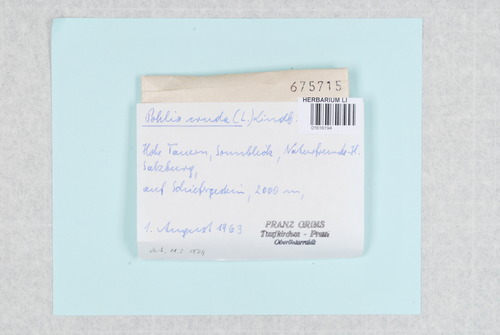 675715
HERBARIUM LI
01616194
Pohlia cruda (L.) Lindb.
Hohe Tauern, Sonnblick, Naturfreunde-H.
Salzburg,
auf Schiefergestein, 2000 m,
1. August 1963
FRANZ GRIMS
Taufkirchen - Pram
Oberösterreich